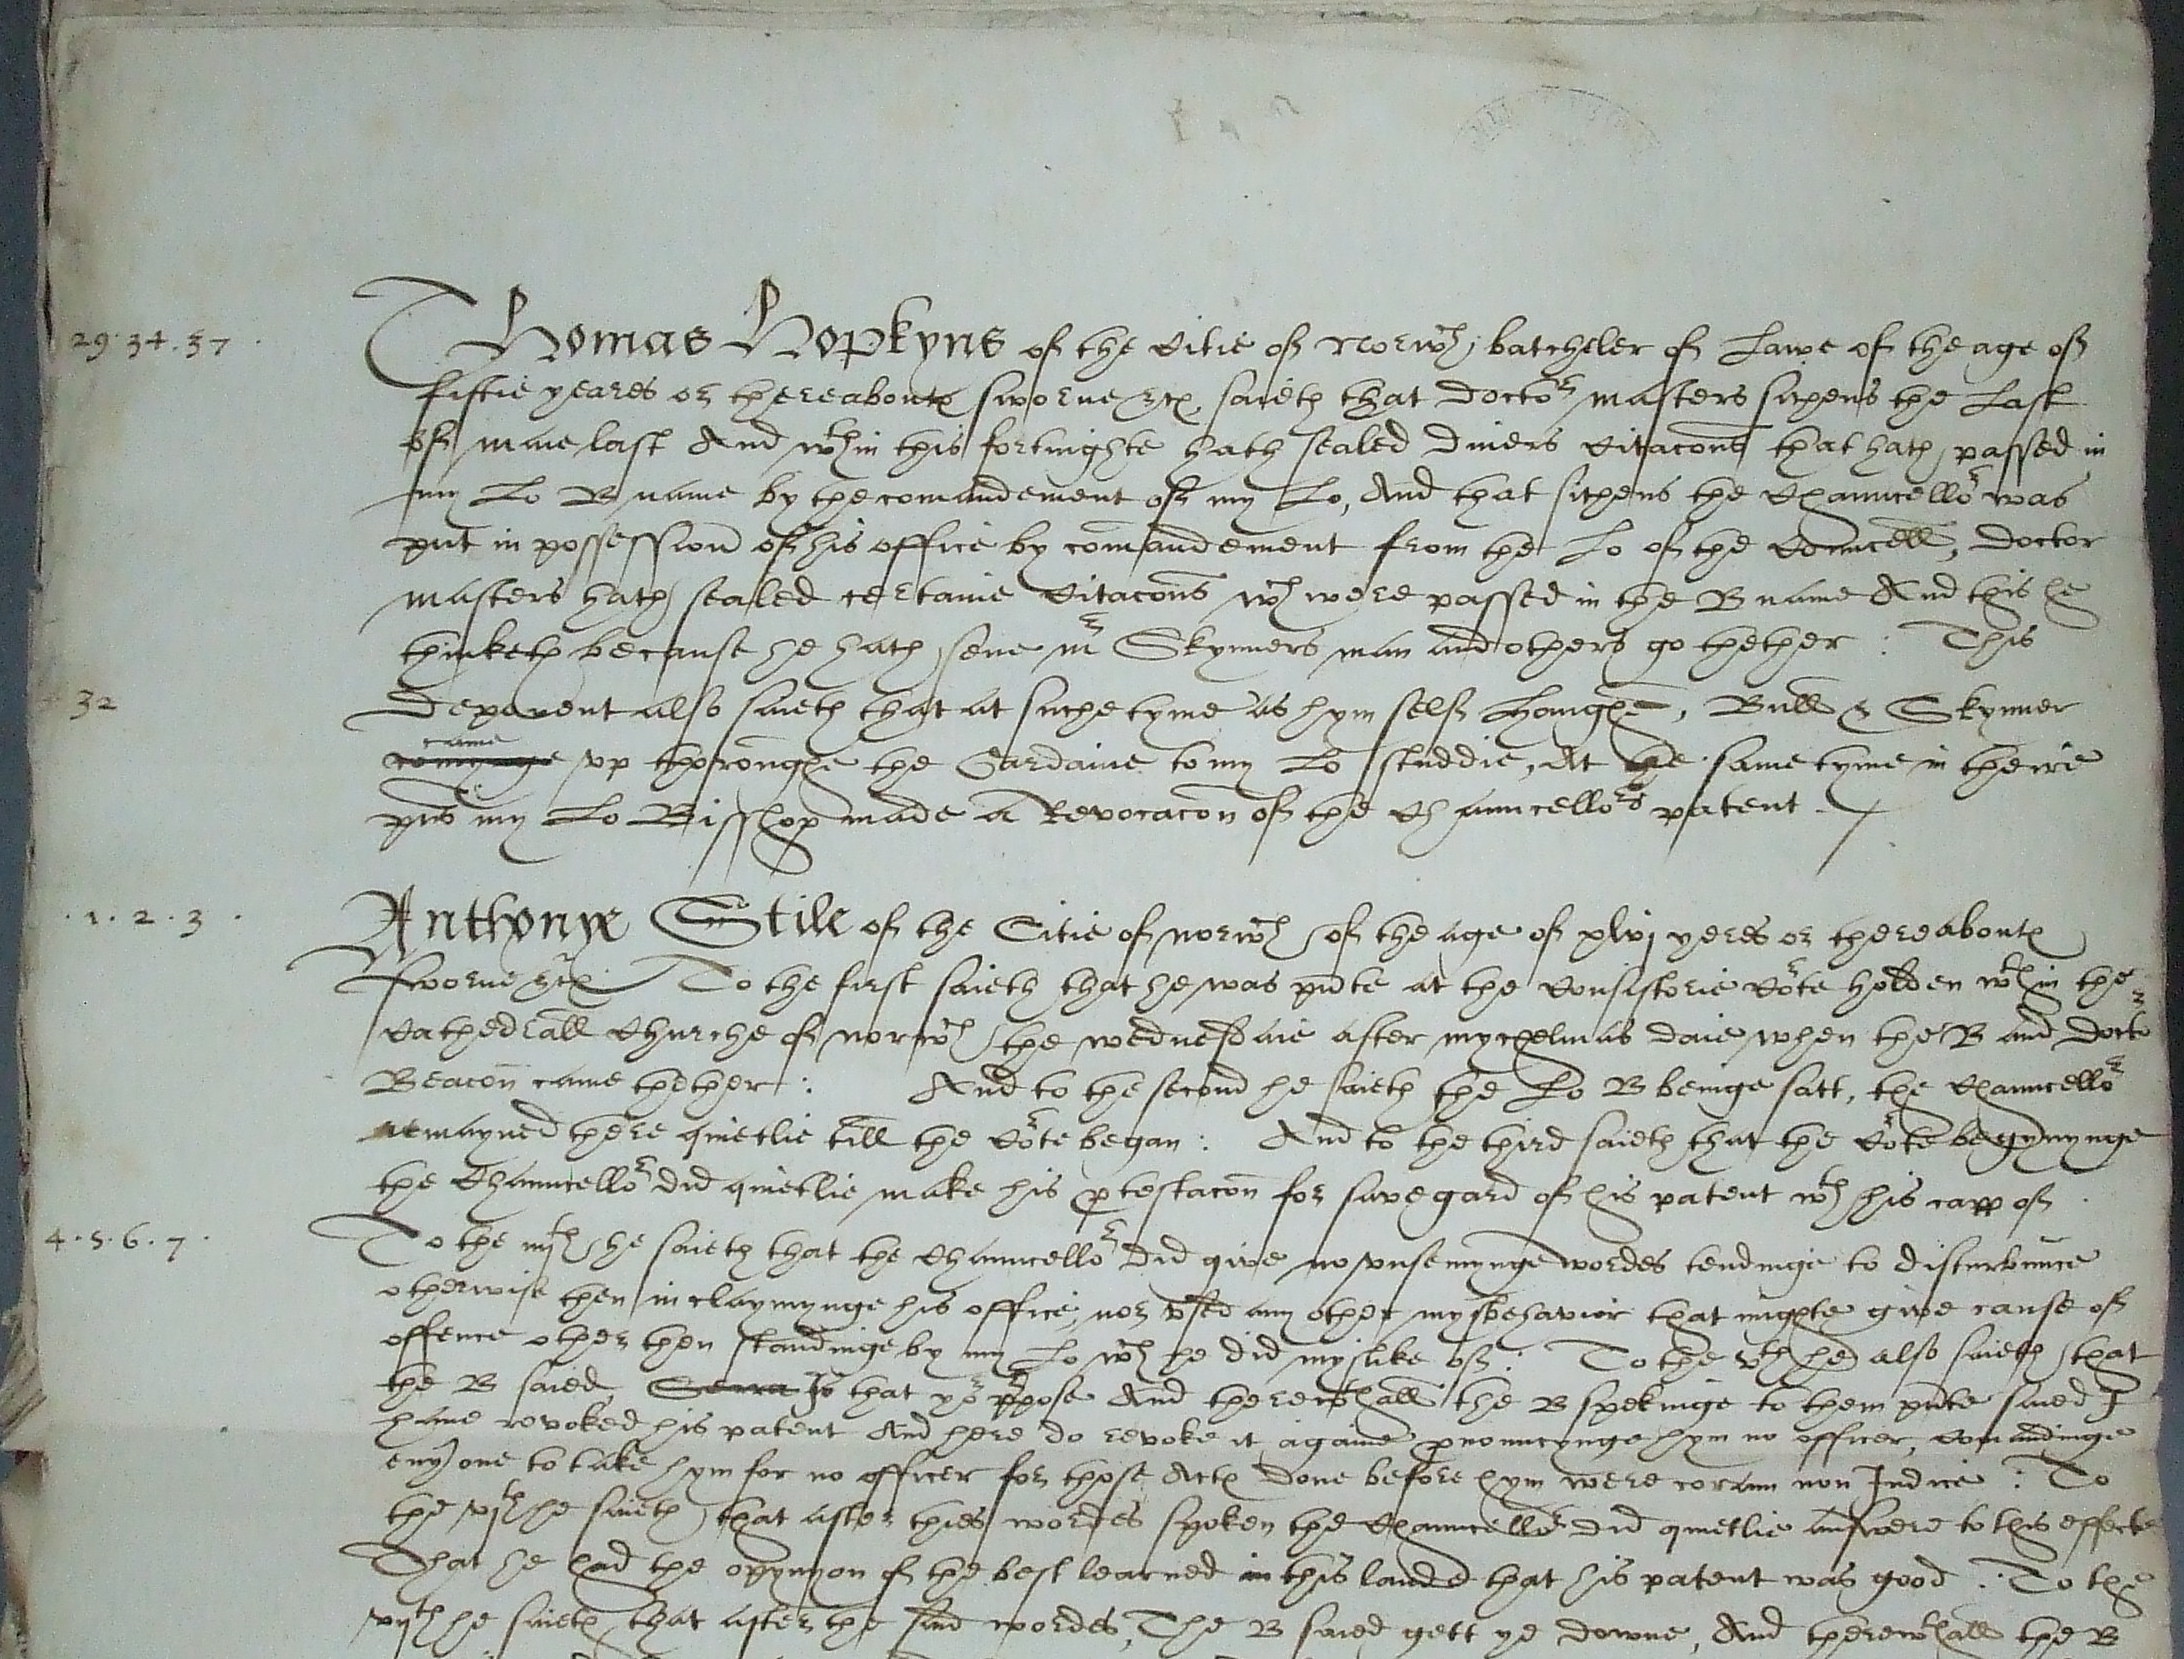 29 . 34 . 37 .
Thomas Hopkyns of the Citie of Norwch batcheler of Lawe of the age of
fiftie yeares or thereaboutes sworne &c saieth that Doctor Masters sithens the Last
of maie last And wthin this fortnighte hath sealed divers Citacons that hath passed in
my Lo B name by the comandement of my Lo, And that sithens the Chauncellor was
put in possession of his office by comandement from the Lo of the Councell, Doctor
Masters hath sealed certaine Citacons wch were passed in the B name And this he
thinketh because he hath sene mr Skynners man and others go thether : This
32
Deponent also saieth that at suche tyme as hym self, Bull & Skynner
came
comynge up throughe the Gardaine to my Lo studdie, At the same tyme in theire
pns my Lo Bisshop made a Revocacon of the Chauncellors patent
. 1 . 2 . 3 .
Anthonye Stile of the Citie of norwch of the age of xlvj yeres or thereaboutes
sworne &c To the first saieth that he was pnte at the Consistorie Corte holden wthin the
Cathedrall Churche of norwch the wednesdaie after mychelmas daie when the B and Doctor
Beacon came thether : And to the second he saieth the Lo B beinge satt, the Chauncellor
remayned there quietlie till the Corte began : And to the third saieth that the Corte begynynge
the Chauncellor did quietlie make his ptestacon for savegard of his patent wth his capp of
4 . 5 . 6 . 7 .
To the iiijth he saieth that the Chauncellor did give no unsemynge wordes tendinge to disturbaunce
otherwise then in claymynge his office, nor used any other mysbehavior that mighte give cause of
offence other then standinge by my Lo wch he did myslike of : To the vth he also saieth that
the B saied to that yor ppose And therewthall the B spekinge to them pnte saied I
have revoked his patent And here do revoke it againe pnouncynge hym no officer, comandinge
eny one to take hym for no officer for those Actes done before hym were coram non Judice : To
the vjth he saieth that after thies wordes spoken the Chauncellor did quietlie answere to this effecte
That he had the opynyon of the best learned in this lande that his patent was good : To the
vijth he saieth that after the said wordes, The B saied gett ye downe, And therewthall the B